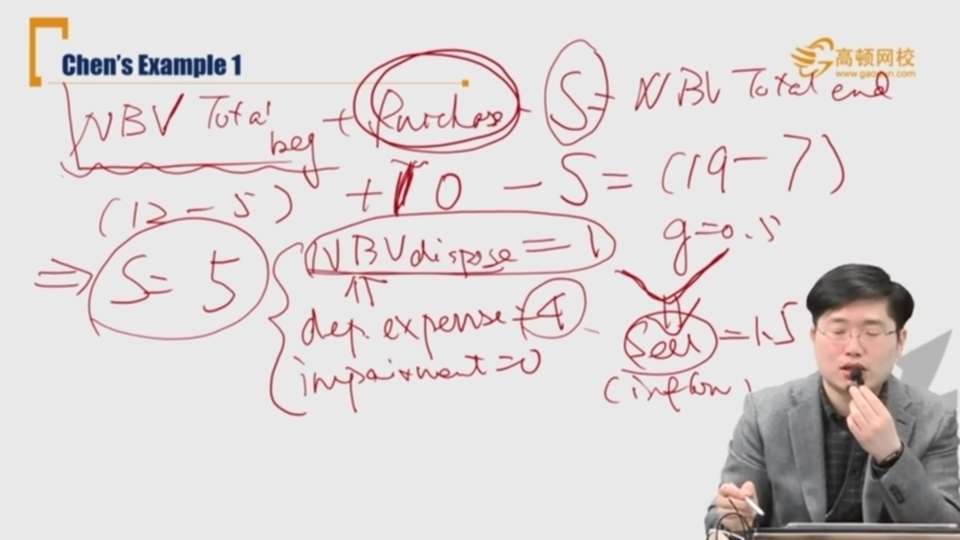 Chen's Example 1
高顿网校
www.gaodun.com
NBV Total beg + Purchase - S = NBV Total end
(12-5) + 10 - S = (19-7)
⇒ S = 5
NBV dispose = 1
dep. expense = 4
impairment = 0
g = 0.5
Sell = 1.5
(inflow)